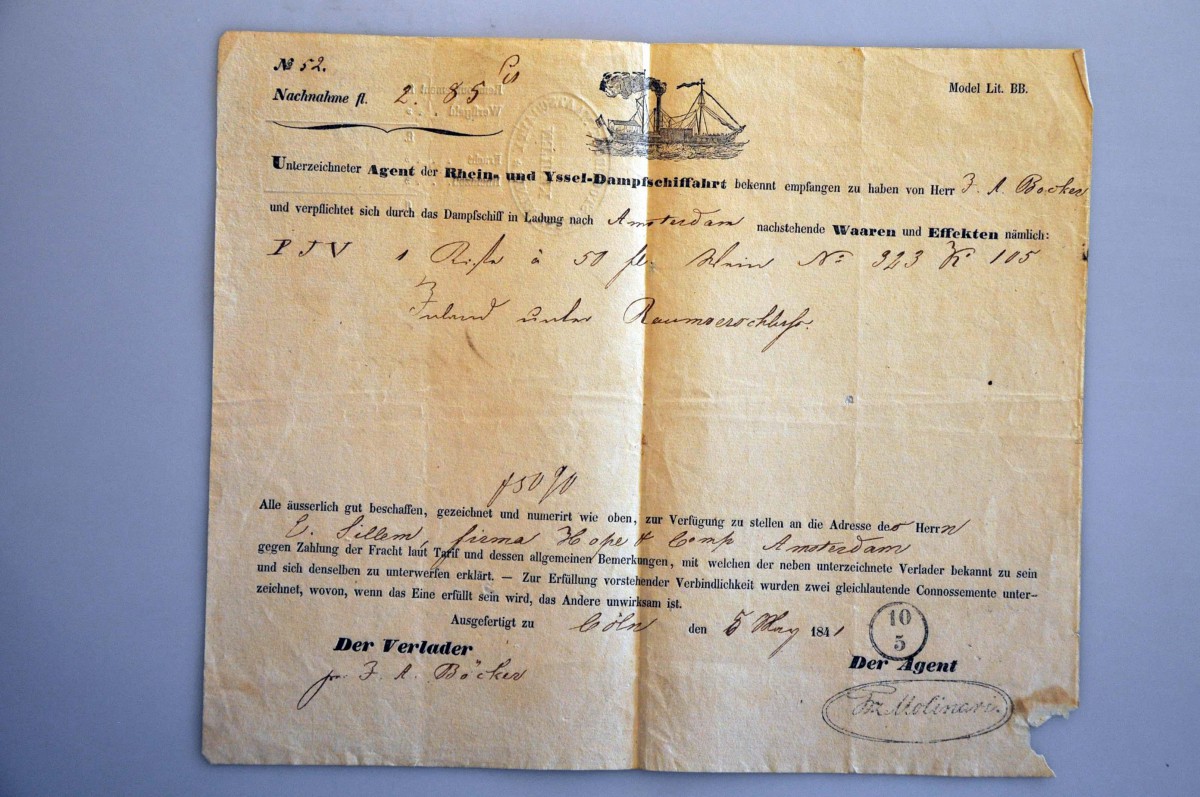 № 52.
Nachnahme fl. 2. 85
Model Lit. BB.
Unterzeichneter Agent der Rhein- und Yssel-Dampfschiffahrt bekennt empfangen zu haben von Herr F. A. Böcker
und verpflichtet sich durch das Dampfschiff in Ladung nach Amsterdam nachstehende Waaren und Effekten nämlich:
P J V 1 Kiste à 50 fl. Wein No 323 K 105
Inland unter Raumverschluss.
Alle äusserlich gut beschaffen, gezeichnet und numerirt wie oben, zur Verfügung zu stellen an die Adresse des Herrn
E. Sillem, firma Hope & Comp Amsterdam
gegen Zahlung der Fracht laut Tarif und dessen allgemeinen Bemerkungen, mit welchen der neben unterzeichnete Verlader bekannt zu sein
und sich denselben zu unterwerfen erklärt. — Zur Erfüllung vorstehender Verbindlichkeit wurden zwei gleichlautende Connossemente unter-
zeichnet, wovon, wenn das Eine erfüllt sein wird, das Andere unwirksam ist.
Ausgefertigt zu Cöln den 5 May 1841
10
5
Der Verlader
Der Agent
pr. F. A. Böcker
Fz Molinari.